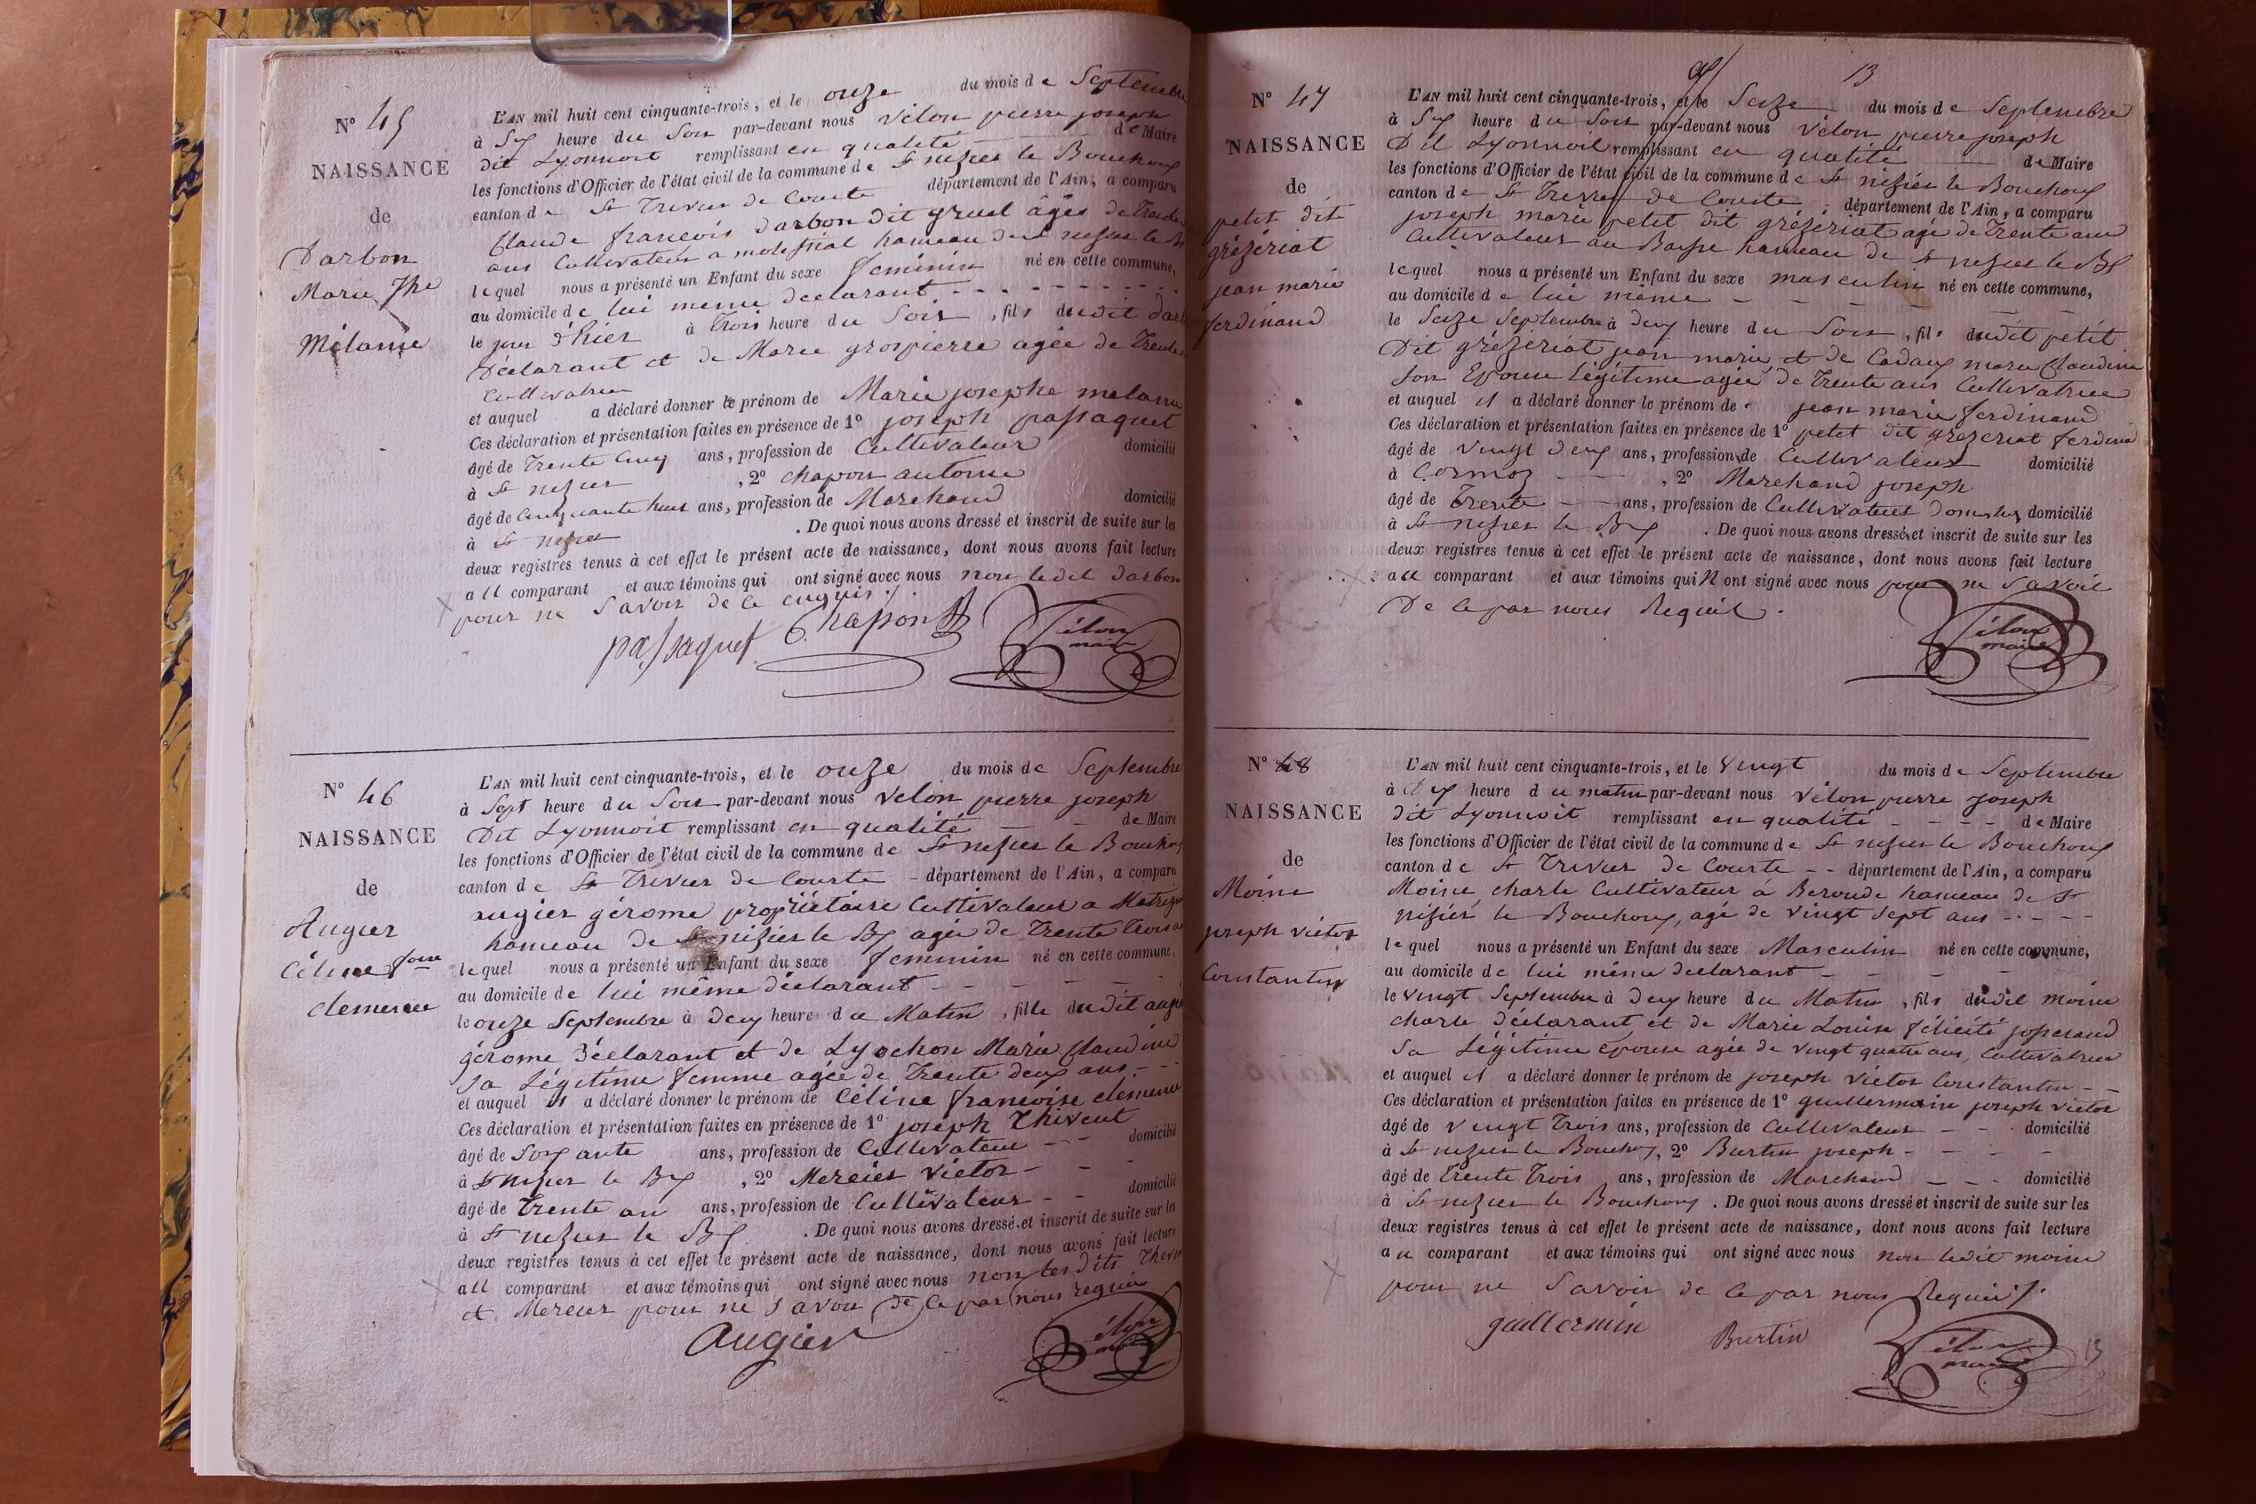 N° 45
NAISSANCE
de
Darbon
Marie Jhe
Mélanie
L'AN mil huit cent cinquante-trois, et le onze du mois de Septembre
à Six heure du Soir par-devant nous vélon pierre joseph
dit Lyonnoit remplissant en qualité de Maire
les fonctions d'Officier de l'état civil de la commune de St nizier le Bouchoux
canton de St Trivier de Courte département de l'Ain, a comparu
Claude françois Darbon dit gruel âgés de Trente
ans Cultivateur a hameau de St nizier le Bx
lequel nous a présenté un Enfant du sexe féminin né en cette commune,
au domicile de lui même déclarant
le jour d'hier à Trois heure du Soir, fils dudit
Déclarant et de Marie grospierre agée de Trente
Cultivatrice
et auquel a déclaré donner le prénom de Marie josephe melanie
Ces déclaration et présentation faites en présence de 1° joseph passaquet
âgé de Trente Cinq ans, profession de Cultivateur domicilié
à St nizier, 2° chapon antoine
âgé de Cinquante huit ans, profession de Marchand domicilié
à St nizier. De quoi nous avons dressé et inscrit de suite sur les
deux registres tenus à cet effet le présent acte de naissance, dont nous avons fait lecture
au comparant et aux témoins qui ont signé avec nous non ledit Darbon
pour ne Savoir de ce enquis
passaquet Chapon Vélon
maire
N° 46
NAISSANCE
de
Augier
Céline foise
clemence
L'AN mil huit cent cinquante-trois, et le onze du mois de Septembre
à Sept heure du Soir par-devant nous Vélon pierre joseph
Dit Lyonnoit remplissant en qualité de Maire
les fonctions d'Officier de l'état civil de la commune de St nizier le Bouchoux
canton de St Trivier de Courte département de l'Ain, a comparu
augier gérome propriétaire Cultivateur a
hameau de St nizier le Bx agée de Trente Trois ans
lequel nous a présenté un Enfant du sexe féminin né en cette commune,
au domicile de lui même déclarant
le onze Septembre à Deux heure du Matin, fille dudit augier
gérome Déclarant et de Lyochon Marie Claudine
Sa Légitime femme agée de Trente deux ans
et auquel il a déclaré donner le prénom de Céline françoise clemence
Ces déclaration et présentation faites en présence de 1° joseph Thivent
âgé de Soixante ans, profession de Cultivateur domicilié
à St nizier le Bx, 2° Mercier Victor
âgé de Trente an ans, profession de Cultivateur domicilié
à St nizier le Bx. De quoi nous avons dressé et inscrit de suite sur les
deux registres tenus à cet effet le présent acte de naissance, dont nous avons fait lecture
au comparant et aux témoins qui ont signé avec nous non lesdits
et Mercier pour ne Savoir de ce par nous requis
Augier Vélon
maire
13
N° 47
NAISSANCE
de
petit dit
grézériat
jean marie
ferdinand
L'AN mil huit cent cinquante-trois, et le Seize du mois de Septembre
à Six heure du Soir par-devant nous Vélon pierre joseph
Dit Lyonnoit remplissant en qualité de Maire
les fonctions d'Officier de l'état civil de la commune de St nizier le Bouchoux
canton de St Trivier de Courte, département de l'Ain, a comparu
joseph marie petit dit grézériat agé de Trente ans
Cultivateur au hameau de St nizier le Bx
lequel nous a présenté un Enfant du sexe masculin né en cette commune,
au domicile de lui même
le Seize Septembre à Deux heure du Soir, fils dudit petit
Dit grézériat jean marie et de Cadoux marie Claudine
Son Epouse Légitime agée de Trente ans Cultivatrice
et auquel il a déclaré donner le prénom de jean marie ferdinand
Ces déclaration et présentation faites en présence de 1° petit dit grézériat ferdinand
âgé de Vingt Deux ans, profession de Cultivateur domicilié
à Cormoz, 2° Marchand joseph
âgé de Trente ans, profession de Cultivateur domicilié
à St nizier le Bx. De quoi nous avons dressé et inscrit de suite sur les
deux registres tenus à cet effet le présent acte de naissance, dont nous avons fait lecture
au comparant et aux témoins qui N ont signé avec nous pour ne Savoir
De ce par nous Requis.
Vélon
maire
N° 48
NAISSANCE
de
Moine
joseph victor
Constantin
L'AN mil huit cent cinquante-trois, et le Vingt du mois de Septembre
à Dix heure du matin par-devant nous Vélon pierre joseph
dit Lyonnoit remplissant en qualité de Maire
les fonctions d'Officier de l'état civil de la commune de St nizier le Bouchoux
canton de St Trivier de Courte département de l'Ain, a comparu
Moine charle Cultivateur a Beronde hameau de St
nizier le Bouchoux, agé de Vingt Sept ans
lequel nous a présenté un Enfant du sexe Masculin né en cette commune,
au domicile de lui même déclarant
le Vingt Septembre à Deux heure du Matin, fils dudit moine
charle déclarant et de Marie Louise félicité josserand
Sa Légitime épouse agée de Vingt quatre ans, Cultivatrice
et auquel il a déclaré donner le prénom de joseph Victor Constantin
Ces déclaration et présentation faites en présence de 1° guillermin joseph victor
âgé de Vingt Trois ans, profession de Cultivateur domicilié
à St nizier le Bouchoux, 2° Burtin joseph
âgé de Trente Trois ans, profession de Marchand domicilié
à St nizier le Bouchoux. De quoi nous avons dressé et inscrit de suite sur les
deux registres tenus à cet effet le présent acte de naissance, dont nous avons fait lecture
au comparant et aux témoins qui ont signé avec nous non ledit moine
pour ne Savoir de ce par nous Requis.
guillermin Burtin Vélon
maire
13